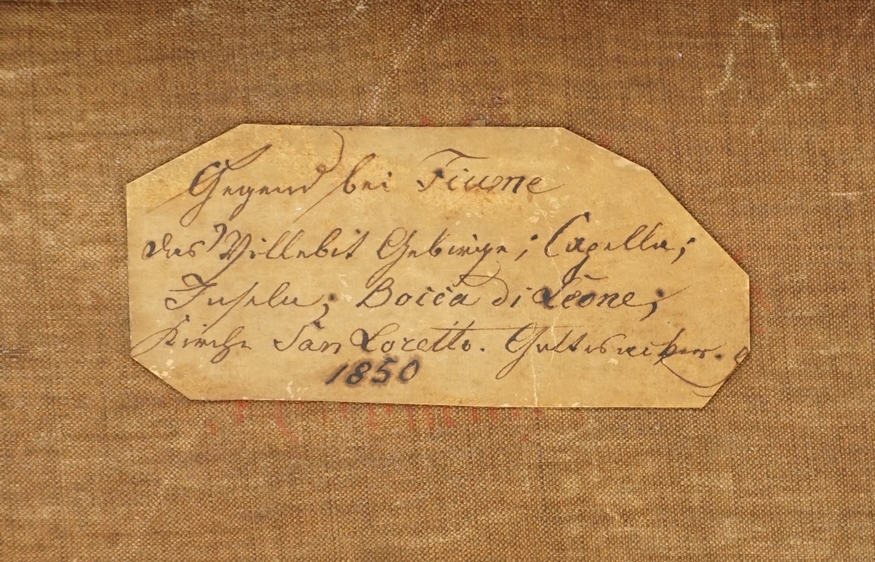 Gegend bei Fiume
das Villebit Gebirge; Capella;
Inseln; Bocca di Leone;
Kirche San Loretto. Gottesacker.
1850